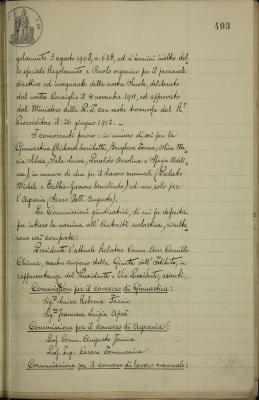 493
golamento 3 agosto 1908, n. 623, ed ai termini inoltre del
lo speciale Regolamento e Ruolo organico per il personale
direttivo ed insegnante della nostra Scuola, deliberato
dal nostro Consiglio il 4 novembre 1911, ed approvato
dal Ministero della P.I. con nota trasmessa dal R.
Provveditore il 26 giugno 1912. _
I concorrenti furono: in numero di sei per la
Ginnastica
Silvia, Sala Luisa,
), in numero di due per il lavoro manuale (
Michele e ), ed uno solo per
l'Agraria ( Dott. Augusto).
Le Commissioni giudicatrici, di cui fu deferita
per intero la nomina all'Autorità scolastica, risulta
rono così composte:
Presidente l'attuale Relatore Comm. Avv. Camillo
, membro anziano della Giunta dell'Istituto, in
rappresentanza del Presidente e Vice Presidente, assenti.
Commissione per il concorso di Ginnastica:
Sig.ra Luisa Rebecca
Sig.na Francesca Luigia
Commissione per il concorso di Agraria:
Prof. Comm. Augusto
Prof. Ing. Cesare Tommasina
Commissione per il concorso di lavoro manuale: